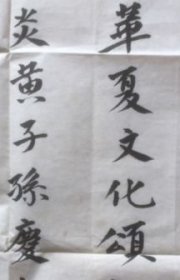 華夏文化頌
炎黄子孫慶